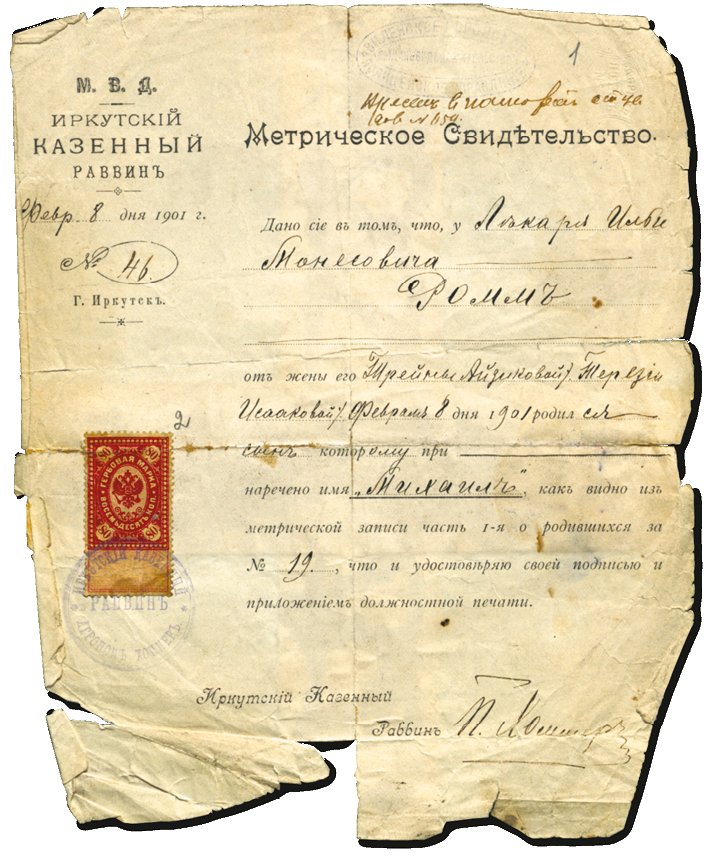 1
М. В. Д.
ИРКУТСКІЙ
КАЗЕННЫЙ
РАВВИНЪ
Февр. 8 дня 1901 г.
№ 46.
Г. Иркутскъ.
Метрическое Свидѣтельство.
Дано сіе въ томъ, что, у Лѣкаря Ильи
Монесовича
РОММЪ
отъ жены его Трейны Айзиковой/ Терезіи
Исааковой/ Февраля 8 дня 1901 родился
сынъ которому при
наречено имя „Михаилъ", какъ видно изъ
метрической записи часть 1-я о родившихся за
№ 19, что и удостовѣряю своей подписью и
приложеніемъ должностной печати.
2
80 80
ГЕРБОВАЯ МАРКА
ВОСЕМЬДЕСЯТЪ КОП.
80 80
ИРКУТСКІЙ КАЗЕННЫЙ
РАВВИНЪ
Иркутскій Казенный
Раввинъ